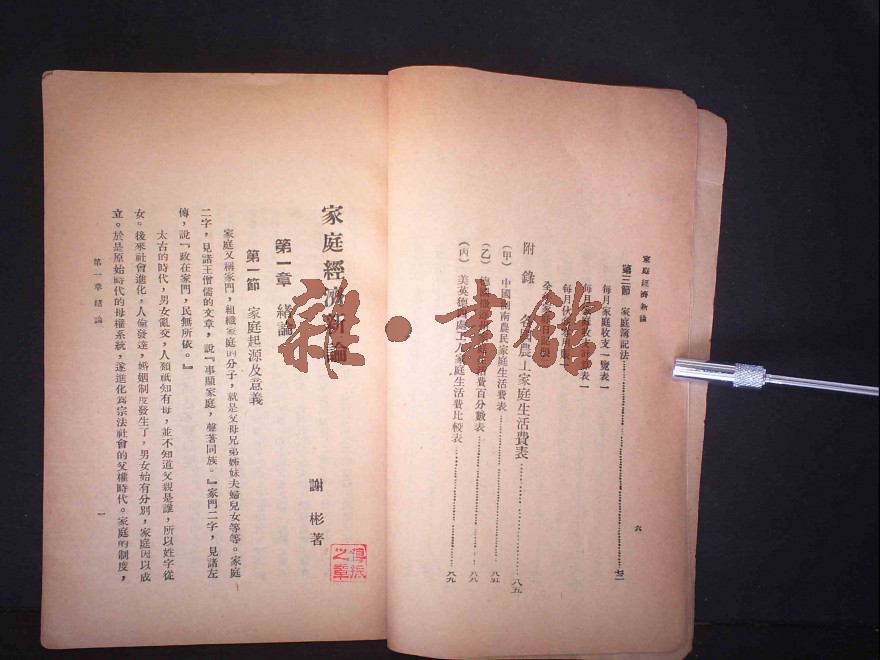 家庭經濟新論
第三節 家庭簿記法 七二
每月家庭收支一覽表一
附錄 各國農工家庭生活費表 八五
(甲)中國湖南農民家庭生活費表 八五
生活費百分數表 八八
(丙)美英德四處工人家庭生活費比較表 八九
六
家庭經濟新論
謝彬著
第一章 緒論
第一節 家庭起源及意義
家庭又稱家門,組織家庭的分子,就是父母兄弟姊妹夫婦兒女等等。家庭
二字,見諸王僧儒的文章,說『事顯家庭,聲著同族。』家門二字,見諸左
傳,說『政在家門,民無所依。』
太古的時代,男女亂交,人類祇知有母,並不知道父親是誰,所以姓字從
女。後來社會進化,人倫發達,婚姻制度發生了,男女始有分別,家庭因以成
立。於是原始時代的母權系統,遂進化為宗法社會的父權時代。家庭的制度,
第一章緒論
一
雜·書站